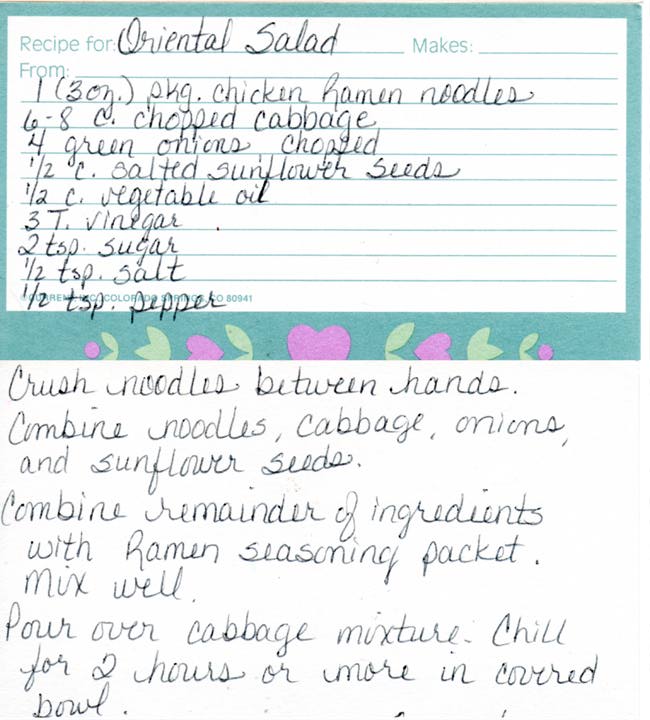 Recipe for: Oriental Salad Makes:
From:
1 (3oz.) pkg. chicken Ramen noodles
6-8 c. chopped cabbage
4 green onions chopped
1/2 c. salted sunflower seeds
1/2 c. vegetable oil
3 T. vinegar
2 tsp. sugar
1/2 tsp. salt
©CURRENT, INC., COLORADO SPRINGS, CO 80941
1/2 tsp. pepper
Crush noodles between hands.
Combine noodles, cabbage, onions,
and sunflower seeds.
Combine remainder of ingredients
with Ramen seasoning packet.
Mix well.
Pour over cabbage mixture. Chill
for 2 hours or more in covered
bowl.